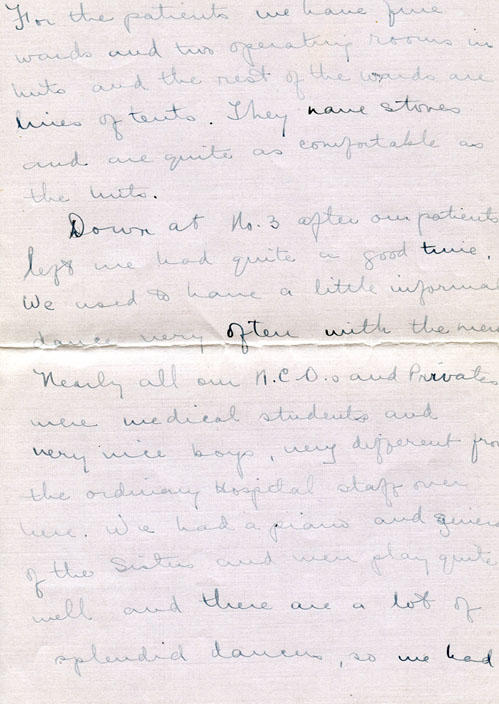 For the patients we have five
wards and two operating rooms in
huts and the rest of the wards are
lines of tents. They have stoves
and are quite as comfortable as
the huts.
Down at No. 3 after our patients
left we had quite a good time.
We used to have a little informal
dance very often with the men
Nearly all our N.C.O.s and Privates
were medical students and
very nice boys, very different from
the ordinary Hospital staff over
here. We had a piano and several
of the Sisters and men play quite
well and there are a lot of
splendid dancers, so we had